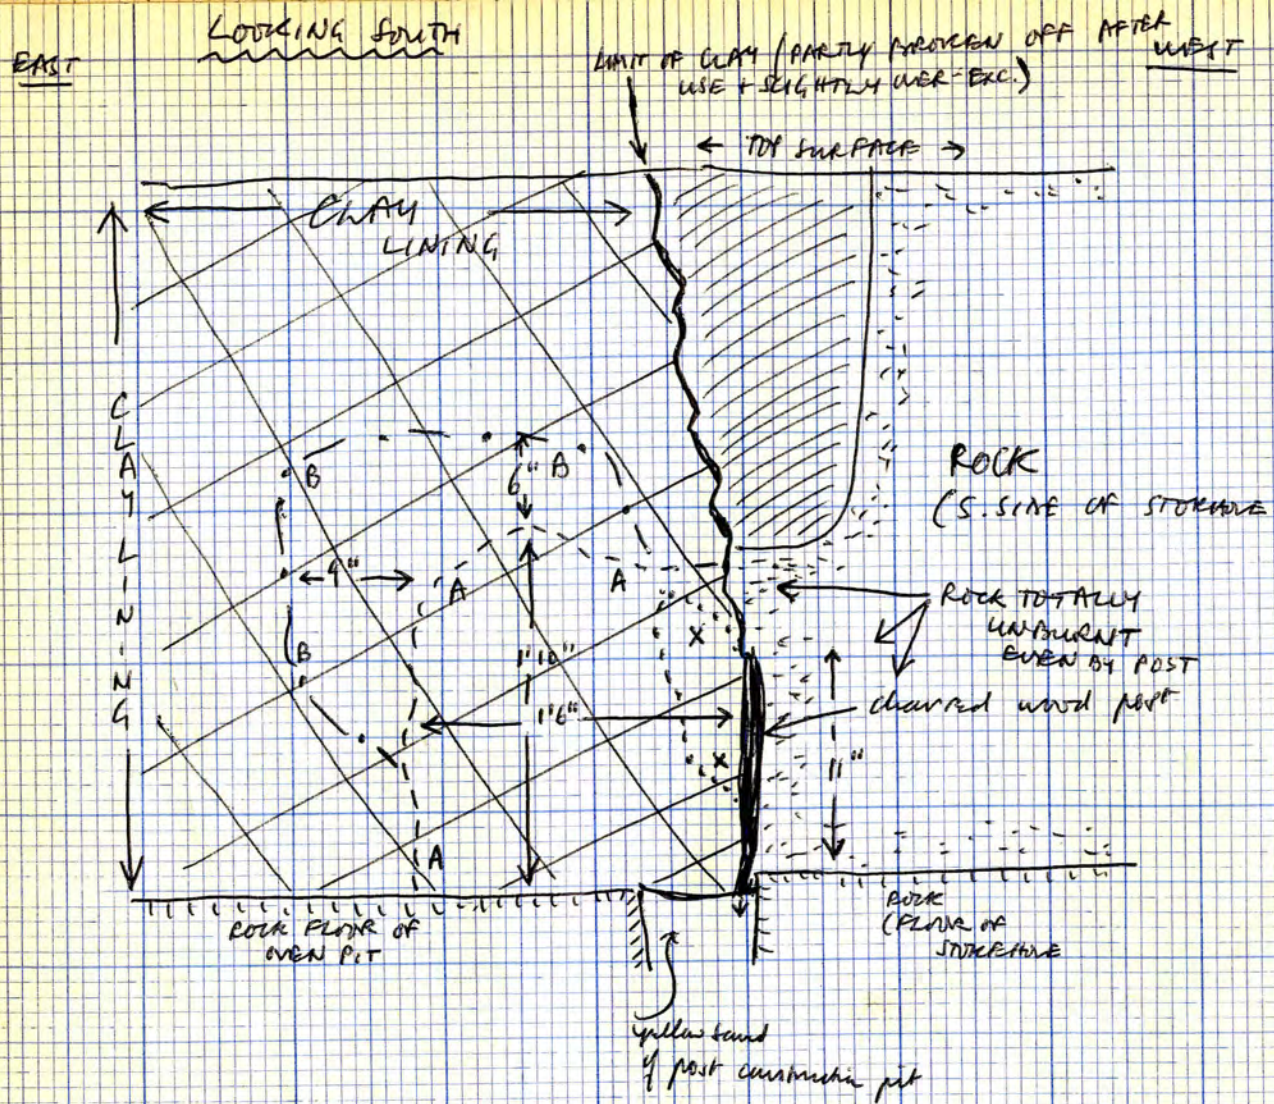 LOOKING SOUTH
EAST
WEST
LIMIT OF CLAY (PARTLY BROKEN OFF AFTER
USE + SLIGHTLY OVER-EXC.)
← TOP SURFACE →
CLAY
LINING
CLAY LINING
B
6"
B
ROCK
(S. SIDE OF STOKEHOLE
9"
A
A
ROCK TOTALLY
UNBURNT
EVEN BY POST
X
B
1'10"
charred wood post
1'6"
X
11"
A
ROCK FLOOR OF
OVEN PIT
ROCK
(FLOOR OF
STOKEHOLE
yellow sand
of post construction pit